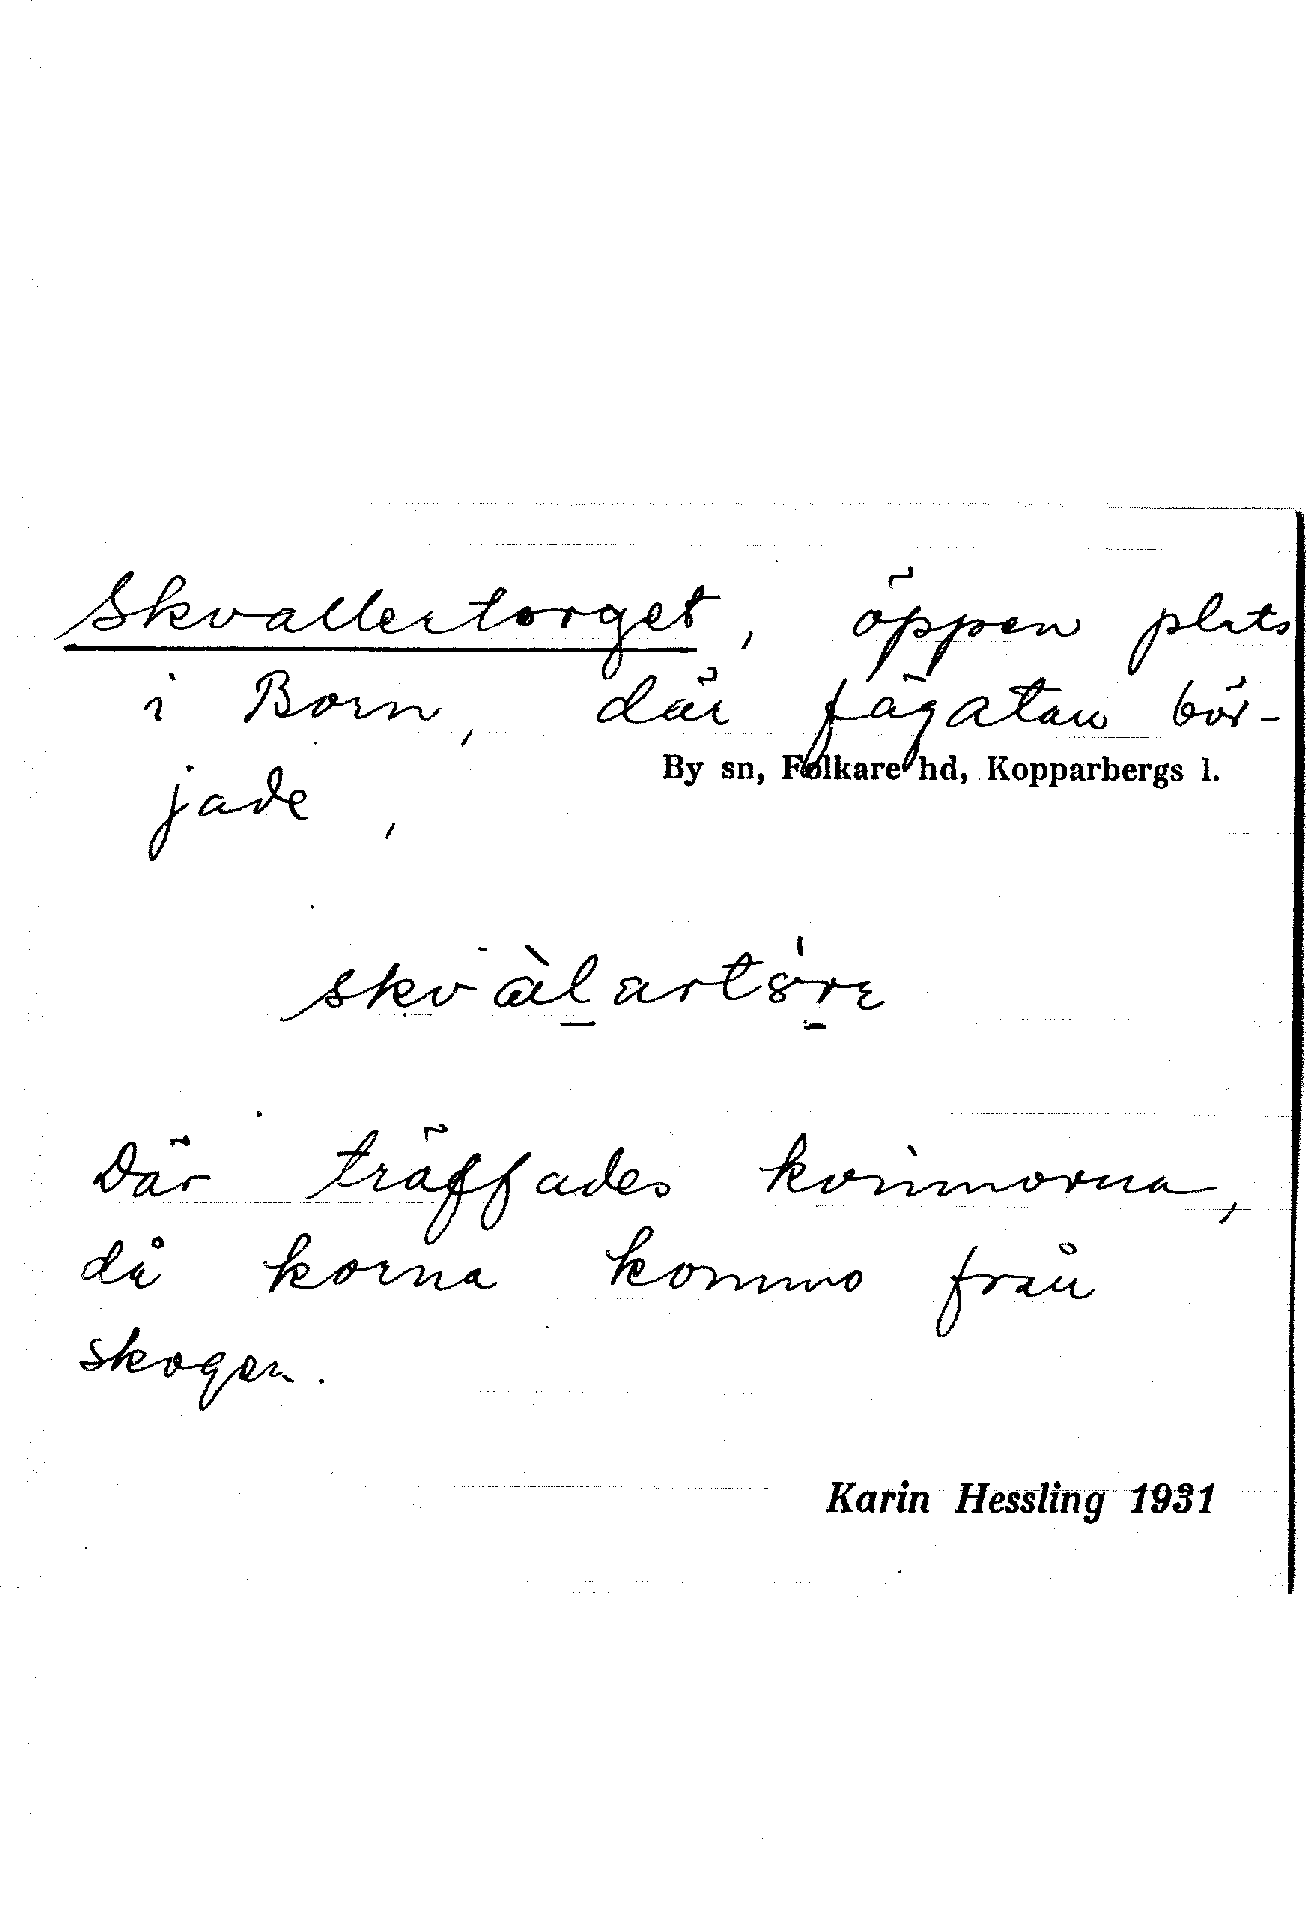 Skvallertorget, öppen plats
i Born, där fägatan bör-
By sn, Folkare hd, Kopparbergs l.
jade,
Där träffades kvinnorna,
då korna kommo från
skogen.
Karin Hessling 1931